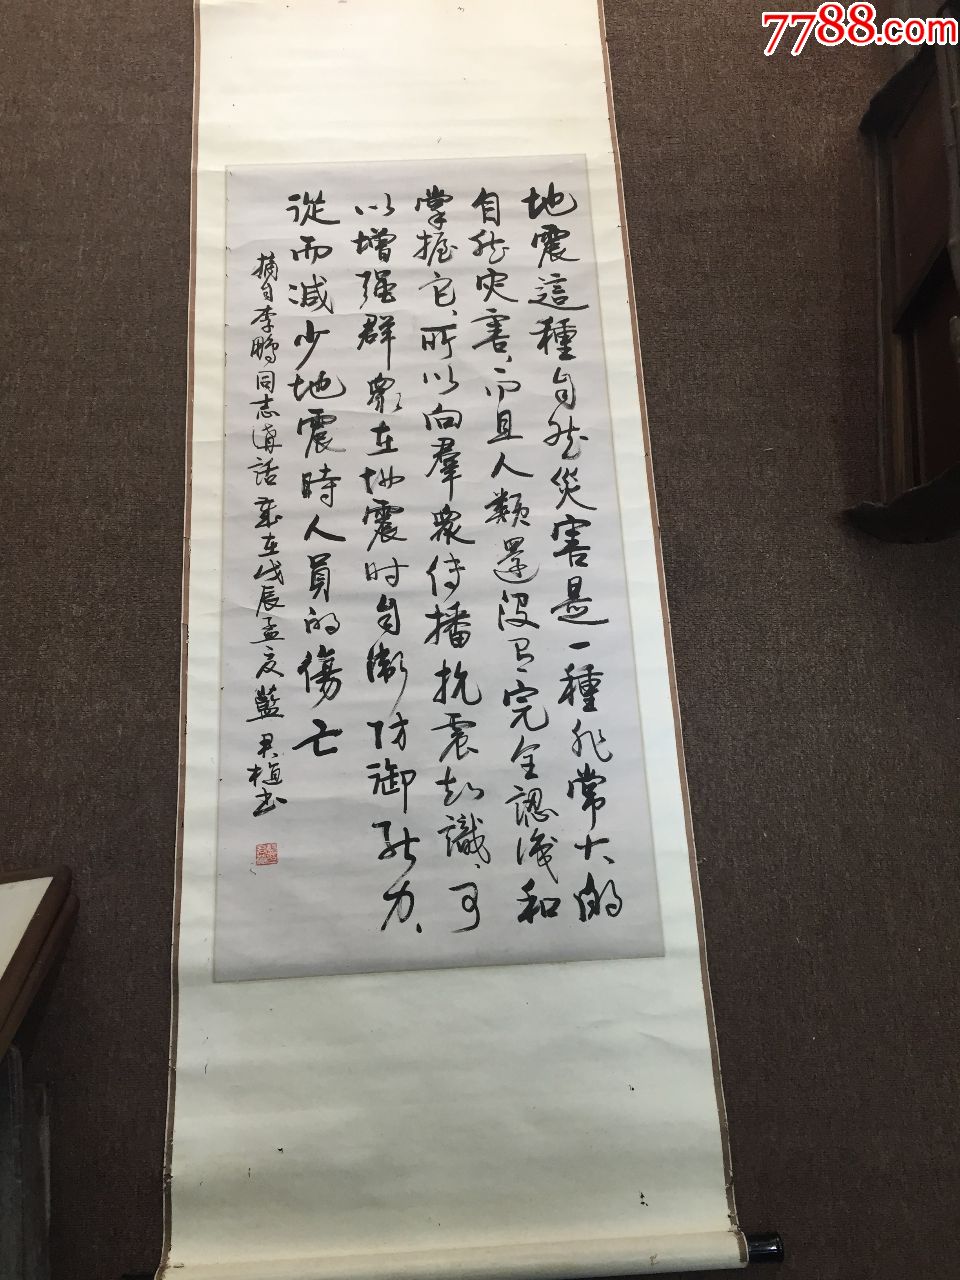 7788.com
地震這種自然災害是一種非常大的
自然灾害、而且人類還没有完全認识和
掌握它、所以向羣眾传播抗震知識、可
以增强群眾在地震时自衛防御能力、
從而減少地震時人員的傷亡
摘自李鹏同志讲话 歲在戊辰孟夏藍君植书